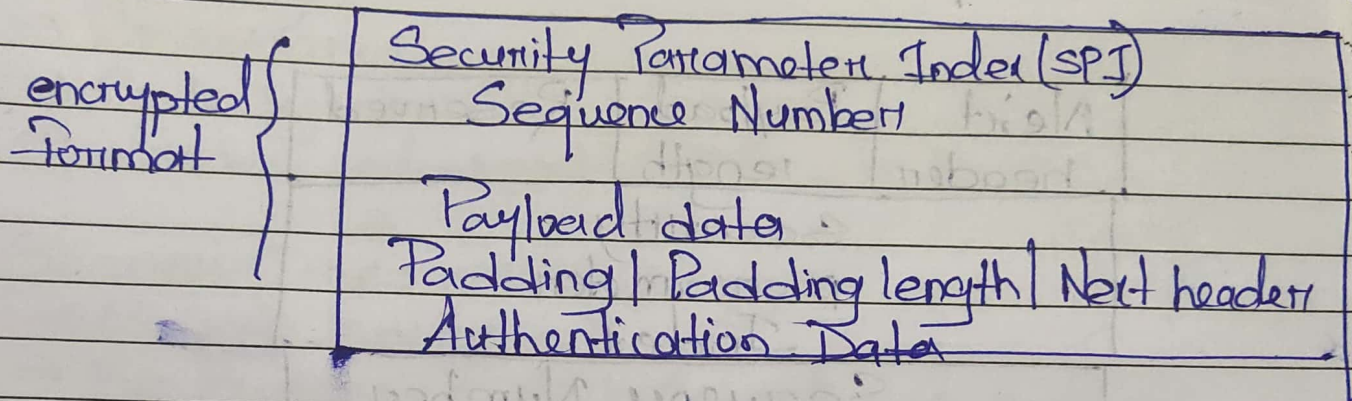 encrypted
format
Security Parameter Index (SPI)
Sequence Number
Payload data
Padding | Padding length | Next header
Authentication Data